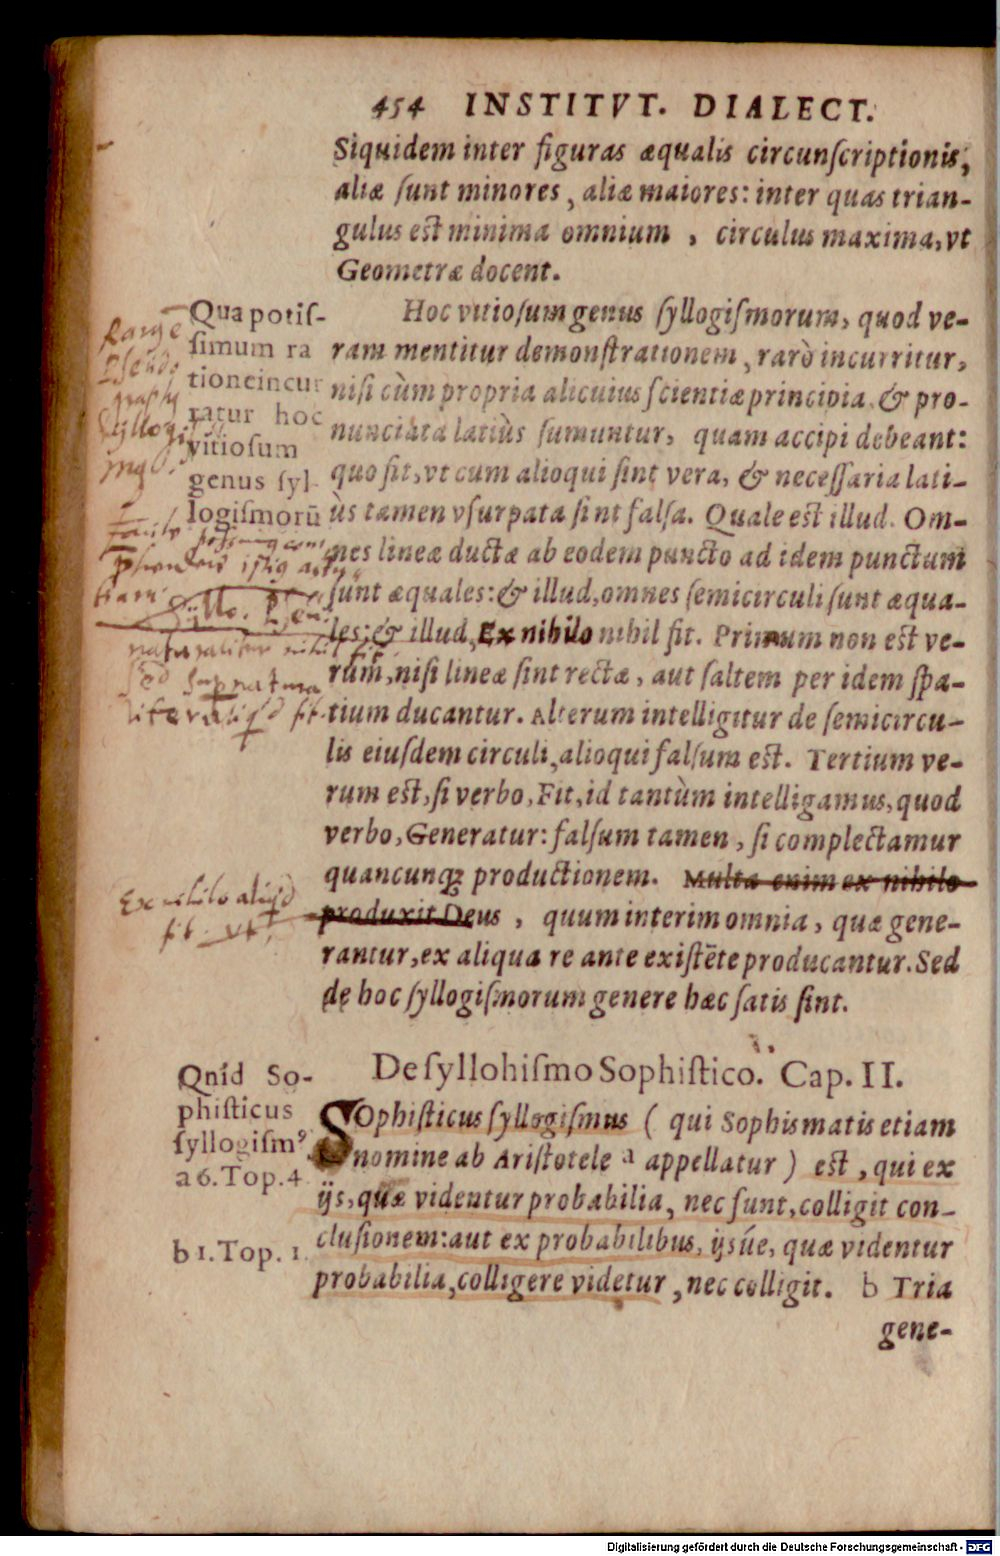 454 INSTITVT. DIALECT.
Siquidem inter figuras æqualis circunſcriptionis,
aliæ ſunt minores, aliæ maiores: inter quas trian-
gulus est minima omnium, circulus maxima, vt
Geometræ docent.
Qua potiſ-
ſimum ra
tione incur
ratur hoc
vitioſum
genus ſyl-
logiſmorũ
Hoc vitioſum genus ſyllogiſmorum, quod ve-
ram mentitur demonſtrationem, rarò incurritur,
niſi cùm propria alicuius ſcientiæ principia, & pro-
nunciata latiùs ſumuntur, quam accipi debeant:
quo fit, vt cum alioqui ſint vera, & neceſſaria lati-
ùs tamen vſurpata ſint falſa. Quale est illud. Om-
nes lineæ ductæ ab eodem puncto ad idem punctum
ſunt æquales: & illud, omnes ſemicirculi ſunt æqua-
les: & illud, Ex nihilo nihil fit. Primum non est ve-
rum, niſi lineæ ſint rectæ, aut ſaltem per idem ſpa-
tium ducantur. Alterum intelligitur de ſemicircu-
lis eiuſdem circuli, alioqui falſum est. Tertium ve-
rum est, ſi verbo, Fit, id tantùm intelligamus, quod
verbo, Generatur: falſum tamen, ſi complectamur
quancunqꝫ productionem. Multa enim ex nihilo
produxit Deus, quum interim omnia, quæ gene-
rantur, ex aliqua re ante existẽte producantur. Sed
de hoc ſyllogiſmorum genere hæc ſatis ſint.
naturaliter nihil fit
Ex nihilo aliqd
fit. vt
De ſyllohiſmo Sophiſtico. Cap. II.
Qnid So-
phiſticus
ſyllogiſmꝰ
a 6. Top. 4
b 1. Top. 1.
SOphiſticus ſyllogiſmus (qui Sophismatis etiam
nomine ab Ariſtotele a appellatur) est, qui ex
ijs, quæ videntur probabilia, nec ſunt, colligit con-
cluſionem: aut ex probabilibus, ijsúe, quæ videntur
probabilia, colligere videtur, nec colligit. b Tria
gene-
Digitalisierung gefördert durch die Deutsche Forschungsgemeinschaft - DFG